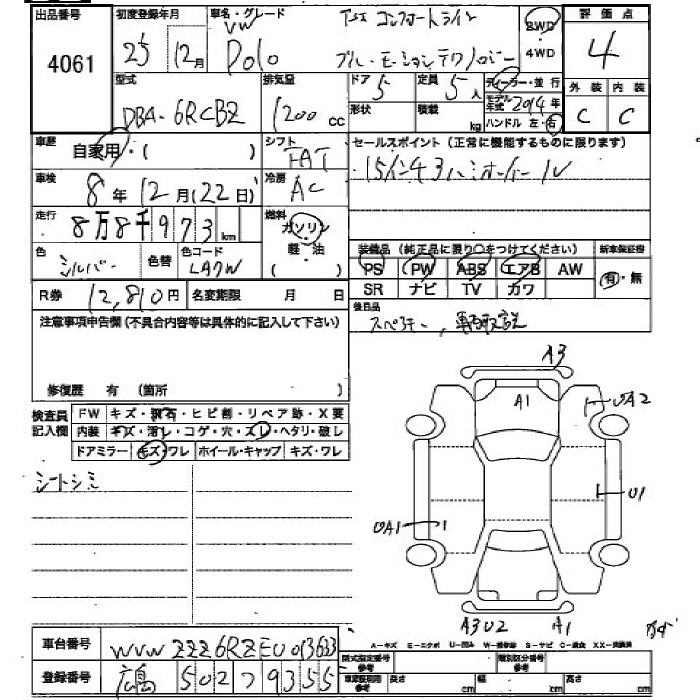 出品番号 初度登録年月 車名・グレード 評価点
4061 25 12月 VW Polo TSI コンフォートライン
ブルーモーションテクノロジー
2WD
4WD
4
型式 排気量 ドア 定員 ディーラー・並行 外装 内装
DBA-6RCBZ 1200 cc 5 5人
形状 積載 kg モデル年式 2014年
ハンドル 左・右 C C
車歴 自家用・( ) シフト FAT
セールスポイント(正常に機能するものに限ります)
15インチ
車検 8年12月(22日) 冷房 AC
走行 8万8千973km 燃料 ガソリン
軽・油
色 シルバー 色替 色コード LA7W
装備品(純正品に限り○をつけてください) 新車保証書
PS PW ABS エアB AW
SR ナビ TV カワ
有・無
R券 12,810円 名変期限 月 日
後日品
スペアキー、
注意事項申告欄(不具合内容等は具体的に記入して下さい)
修復歴 有(箇所 )
検査員記入欄
FW キズ・飛石・ヒビ割・リペア跡・X要
内装 キズ・汚レ・コゲ・穴・スレ・ヘタリ・破レ
ドアミラー キズ・ワレ ホイール・キャップ キズ・ワレ
シートシミ
A3
A1
UA2
U1
UA1
A3 U2 A1
A-キズ E-エクボ U-凹み W-補修跡 S-サビ C-腐食 XX-交換済
車台番号 WVWZZZ6RZEU013633
登録番号 広島 502 つ 9355
型式指定番号 参考 類別区分番号 参考
車両諸元用 参考 長さ cm 幅 cm 高さ cm